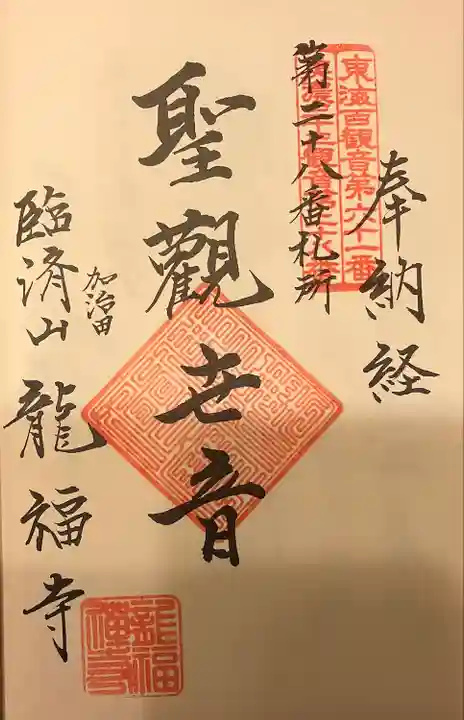 奉納経
東海百観音第六十一番
第二十八番札所
聖觀世音
加治田
臨済山龍福寺
龍福禅寺